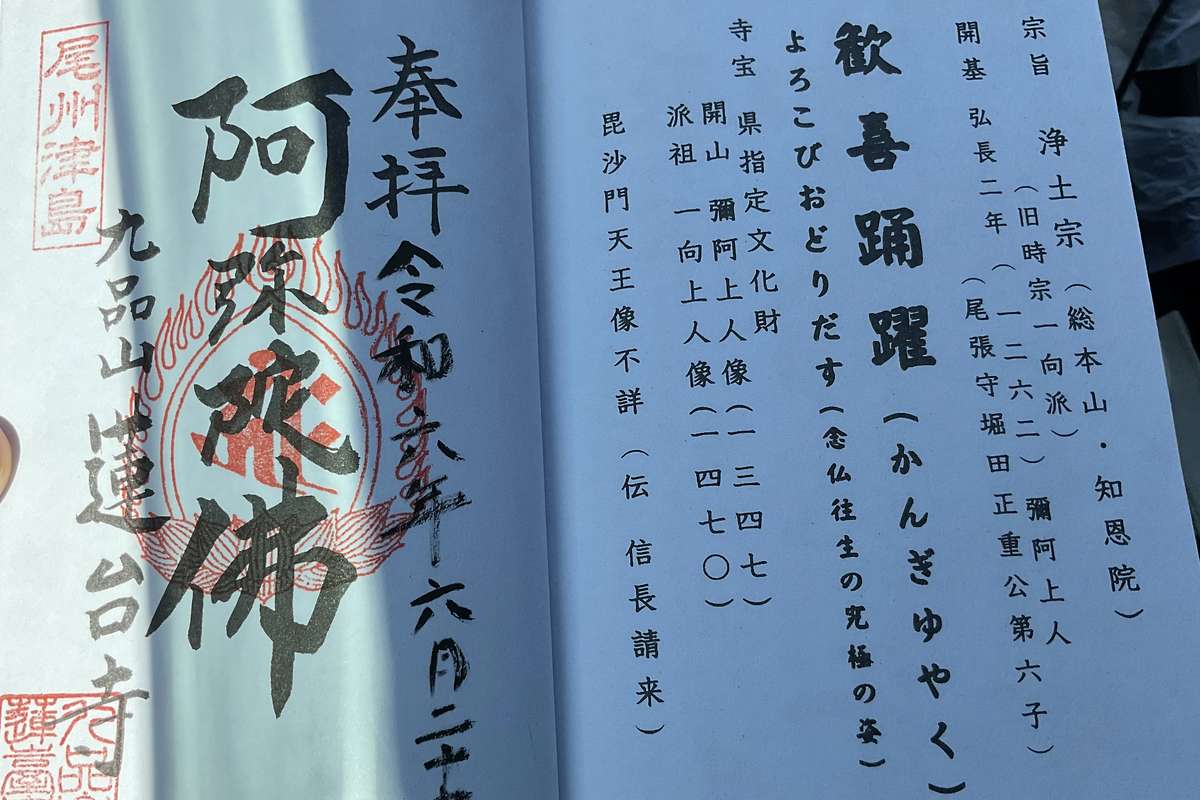 宗旨 浄土宗（総本山・知恩院）
（旧時宗一向派）
開基 弘長二年（一二六二）彌阿上人
（尾張守堀田正重公第六子）
歓喜踊躍（かんぎゆやく）
よろこびおどりだす（念仏往生の究極の姿）
寺宝 県指定文化財
開山 彌阿上人像（一三四七）
派祖 一向上人像（一四七〇）
毘沙門天王像不詳（伝 信長請来）
奉拝 令和六年六月二十
阿弥陀佛
九品山 蓮台寺
尾州津島
九品
蓮臺